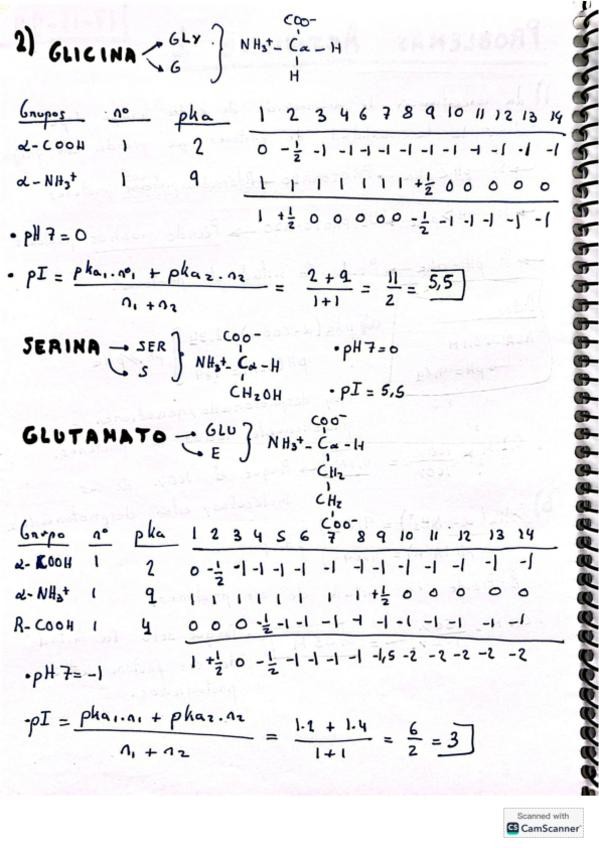 2) GLICINA → GLY
→ G
COO⁻
NH₃⁺ - Cα - H
H
Grupos nº pka 1 2 3 4 6 7 8 9 10 11 12 13 14
α-COOH 1 2 0 -1/2 -1 -1 -1 -1 -1 -1 -1 -1 -1 -1 -1
α-NH₃⁺ 1 9 1 1 1 1 1 1 1 +1/2 0 0 0 0 0
1 +1/2 0 0 0 0 0 -1/2 -1 -1 -1 -1 -1
• pH 7 = 0
• pI = pka₁.nº₁ + pka₂.n₂ / n₁ + n₂ = 2 + 9 / 1+1 = 11/2 = 5,5
SERINA → SER
→ S
COO⁻
NH₃⁺ - Cα - H
CH₂OH
• pH 7 = 0
• pI = 5,5
GLUTAMATO → GLU
→ E
COO⁻
NH₃⁺ - Cα - H
CH₂
CH₂
COO⁻
Grupo nº pka 1 2 3 4 5 6 7 8 9 10 11 12 13 14
α-COOH 1 2 0 -1/2 -1 -1 -1 -1 -1 -1 -1 -1 -1 -1 -1 -1
α-NH₃⁺ 1 9 1 1 1 1 1 1 1 1 +1/2 0 0 0 0 0
R-COOH 1 4 0 0 0 -1/2 -1 -1 -1 -1 -1 -1 -1 -1 -1 -1
1 +1/2 0 -1/2 -1 -1 -1 -1 -1,5 -2 -2 -2 -2 -2
• pH 7 = -1
• pI = pka₁.n₁ + pka₂.n₂ / n₁ + n₂ = 1.2 + 1.4 / 1+1 = 6/2 = 3
Scanned with
CS CamScanner